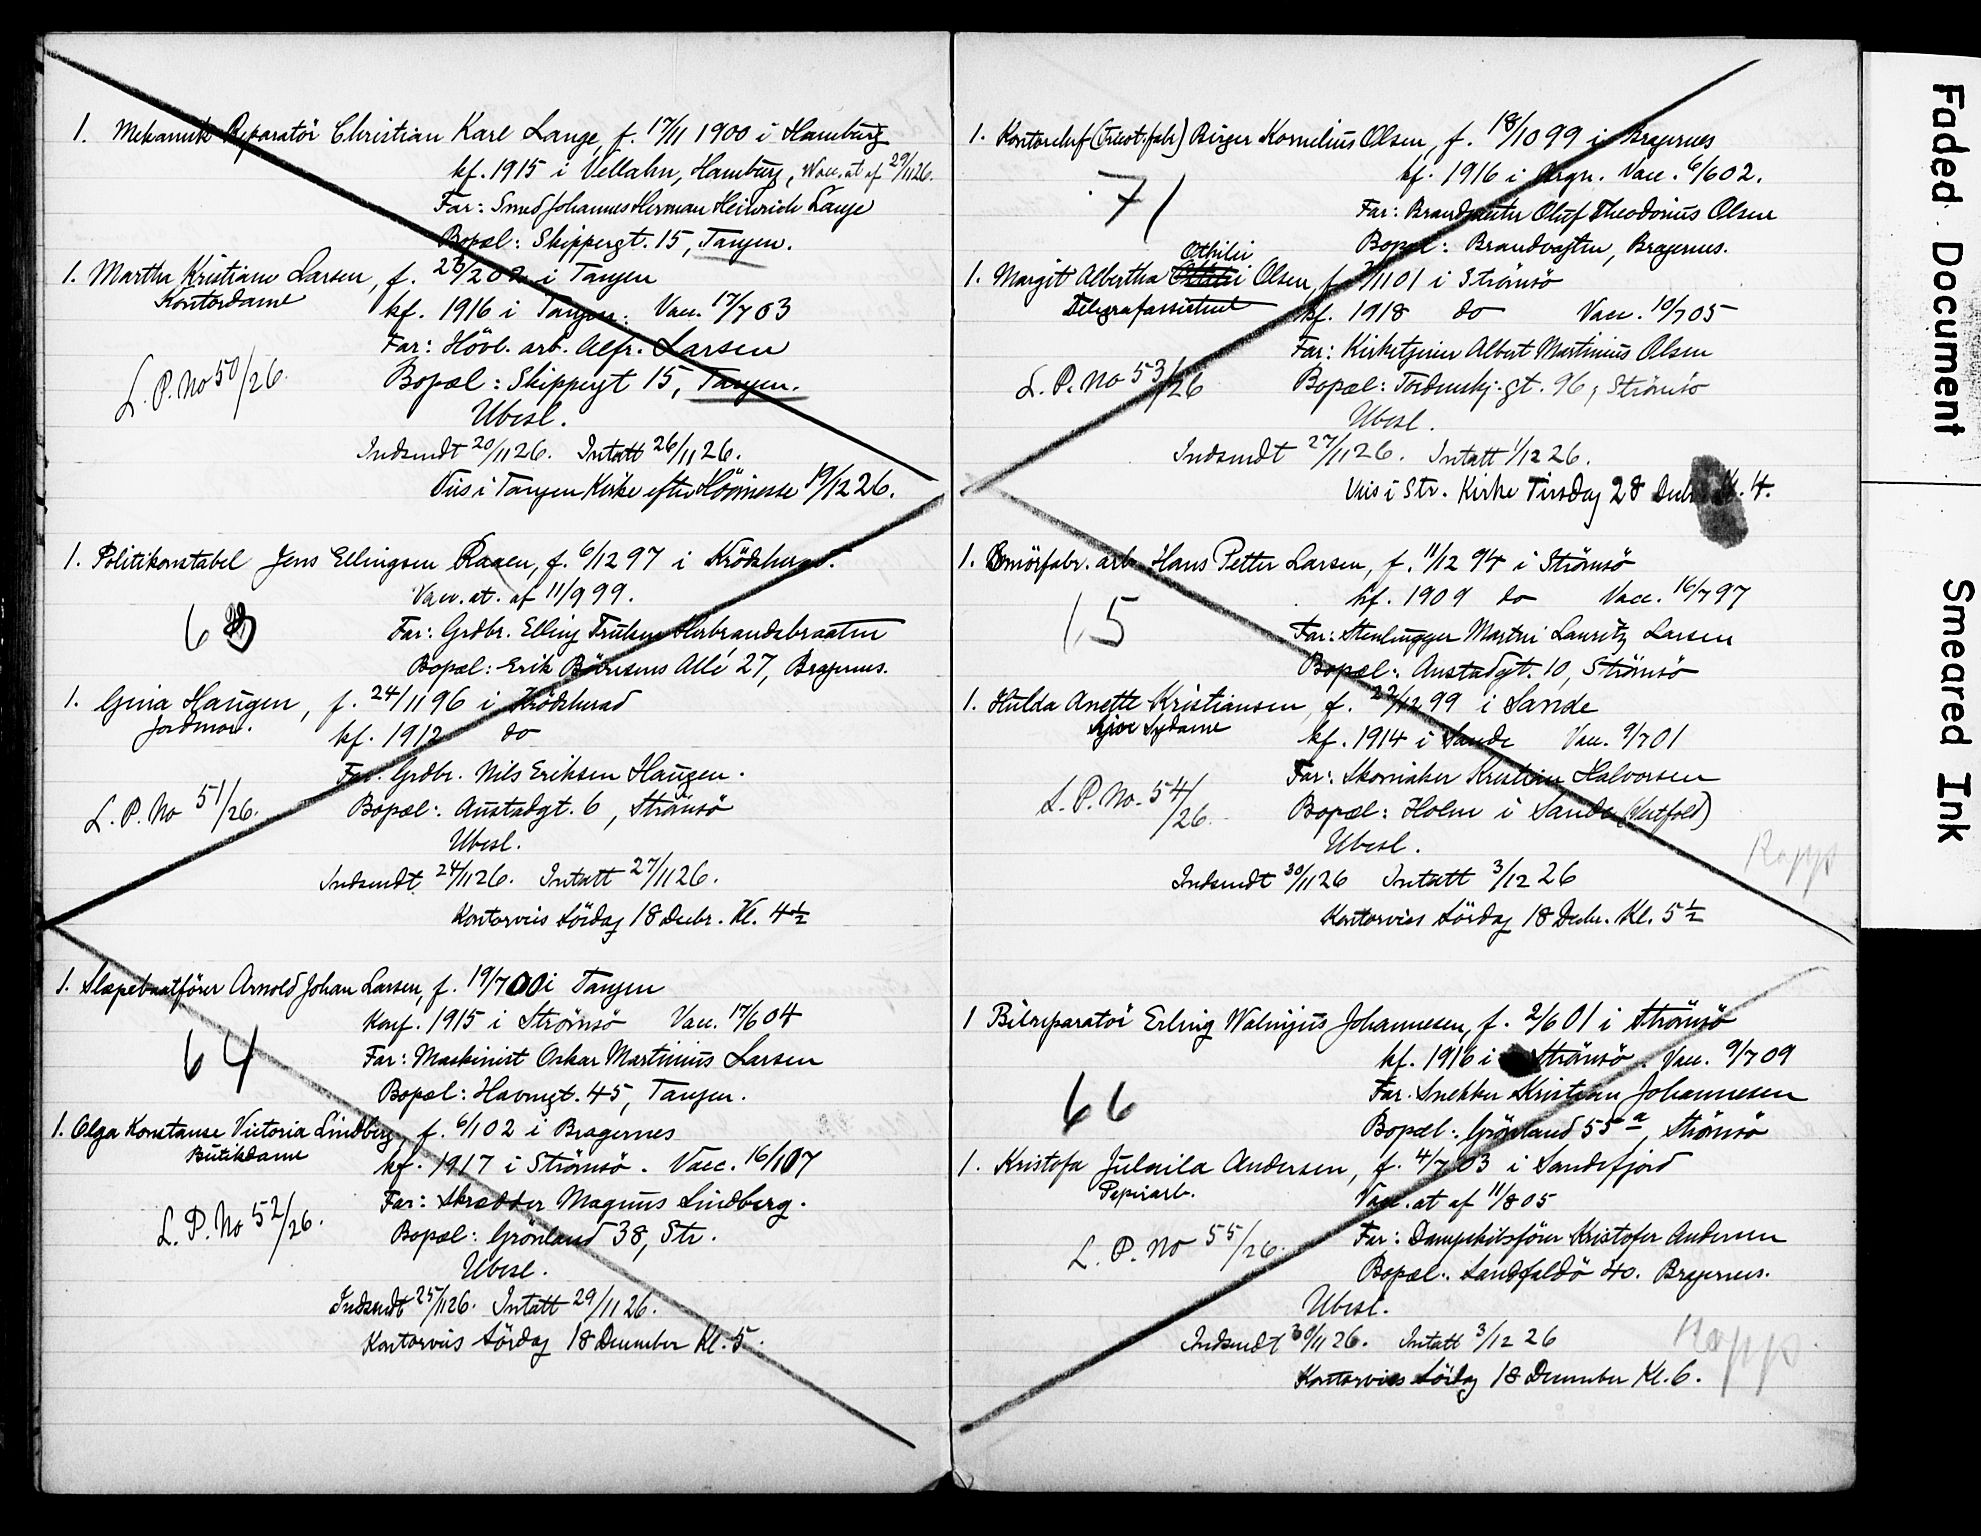 1. Mekanik Reparatör Christian Karl Lange, f. 17/11 1900 i Hamburg
kf. 1915 i Vellahn, Hamburg, Vacc. at af 29/11 26.
Far: Smed Johannes Herman Heinrich Lange
Bopæl: Skippergt. 15, Tangen.
1. Martha Kristiane Larsen, f. 2 02 i Tangen
Kontordame
kf. 1916 i Tangen. Vacc. 17/7 03
Far: Hövl. arb. Alfr. Larsen
L. P. No 50/26.
Bopæl: Skippergt 15, Tangen.
Ubesl.
Indsendt 20/11 26. Intatt 26/11 26.
Viis i Tangen Kirke efter Höimesse 19/12 26.
1. Politikonstabel Jens Ellingsen Raaen, f. 6/12 97 i Krödsherad.
Vacc. at. af 11/9 99.
6
Far: Grdbr. Elling Trulsen Herbrandsbraaten
Bopæl: Erik Börresens Allé 27, Bragernes.
1. Gina Haugen, f. 24/11 96 i Krödsherad
Jordmor.
kf. 1912 do
Far. Grdbr. Nils Eriksen Haugen.
L. P. No 51/26.
Bopæl: Austadgt. 6, Strömsö
Ubesl.
Indsendt 24/11 26. Intatt 27/11 26.
Kontorviis Lördag 18 Decbr. Kl. 4 1/2
1. Slæpebaatförer Arnold Johan Larsen, f. 19/7 00 i Tangen
Konf. 1915 i Strömsö Vacc. 17/6 04
64
Far: Maskinist Oskar Martinius Larsen
Bopæl: Havnegt. 45, Tangen.
1. Olga Konstanse Victoria Lindberg, f. 6/1 02 i Bragernes
Butikdame
kf. 1917 i Strömsö. Vacc. 16/1 07
Far: Skrædder Magnus Lindberg.
L. P. No 52/26.
Bopæl: Grönland 38, Str.
Ubesl.
Indsendt 25/11 26. Intatt 29/11 26.
Kontorviis Lördag 18 December Kl. 5.
1. Kontorchef (Tricot.fabr) Birger Kornelius Olsen, f. 18/10 99 i Bragernes
kf. 1916 i Brgn. Vacc. 6/6 02.
71
Far: Brandmester Oluf Theodorius Olsen
Bopæl: Brandvagten, Bragernes.
Othilie
1. Margit Albertha Olsen, f. /11 01 i Strömsö
Telegrafassistent
kf. 1918 do Vacc. 10/7 05
Far: Kirketjener Albert Martinius Olsen
L. P. No 53/26
Bopæl: Tordenskj. gt. 96, Strömsö
Ubesl.
Indsendt 27/11 26. Intatt 1/12 26.
Viis i Str. Kirke Tirsdag 28 Decbr Kl. 4.
1. Smörfabr. arb. Hans Petter Larsen, f. 11/12 94 i Strömsö
kf. 1909 do Vacc. 16/7 97
15
Far: Stenhugger Martin Lauritz Larsen
Bopæl: Austadgt. 10, Strömsö
1. Hulda Anette Kristiansen, f. 22/12 99 i Sande
Sydame
kf. 1914 i Sande Vacc. 9/7 01
Far: Skomaker Kristian Halvorsen
L. P. No. 54/26.
Bopæl: Holm i Sande (Vestfold)
Ubesl.
Kopps
Indsendt 30/11 26 Intatt 3/12 26
Kontorviis Lördag 18 Decbr. Kl. 5 1/2
1 Bilreparatör Erling Johannesen, f. 2/6 01 i Strömsö
kf. 1916 i Strömsö. Vacc. 9/7 09
66
Far. Snekker Kristian Johannesen
Bopæl: Grönland 55 a, Strömsö
1. Kristofa Andersen, f. 4/7 03 i Sandefjord
Papirarb.
Vacc. at af 11/8 05
L. P. No 55/26.
Far: Dampskibsförer Kristofer Andersen
Bopæl: 40. Bragernes.
Ubesl.
Indsendt 30/11 26. Intatt 3/12 26
Kopps
Kontorviis Lördag 18 December Kl. 6.
Faded Document
Smeared Ink